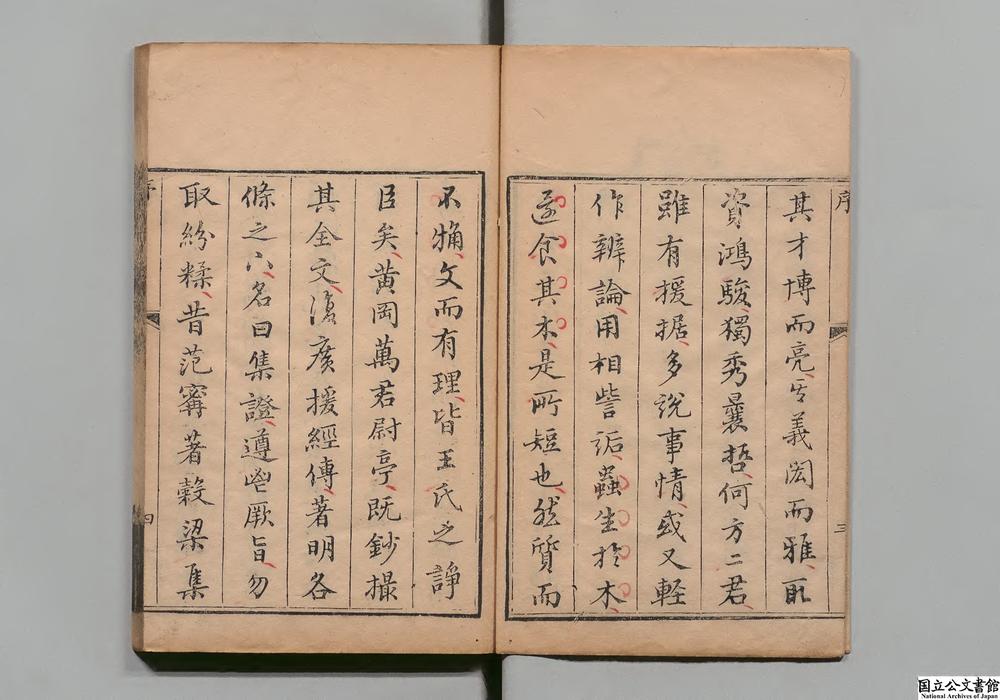 序 三
其才博而亮義閎而雅取
資鴻駿獨秀曩哲何方二君
雖有援据多說事情或又輕
作辨論用相訾詬蟲生於木
還食其木是所短也然質而
不觕文而有理皆王氏之諍
臣矣黃岡萬君尉亭既鈔撮
其全文復廣援經傳著明各
條之下名曰集證遵厥旨勿
取紛糅昔范甯著穀梁集
序 四
国立公文書館
National Archives of Japan